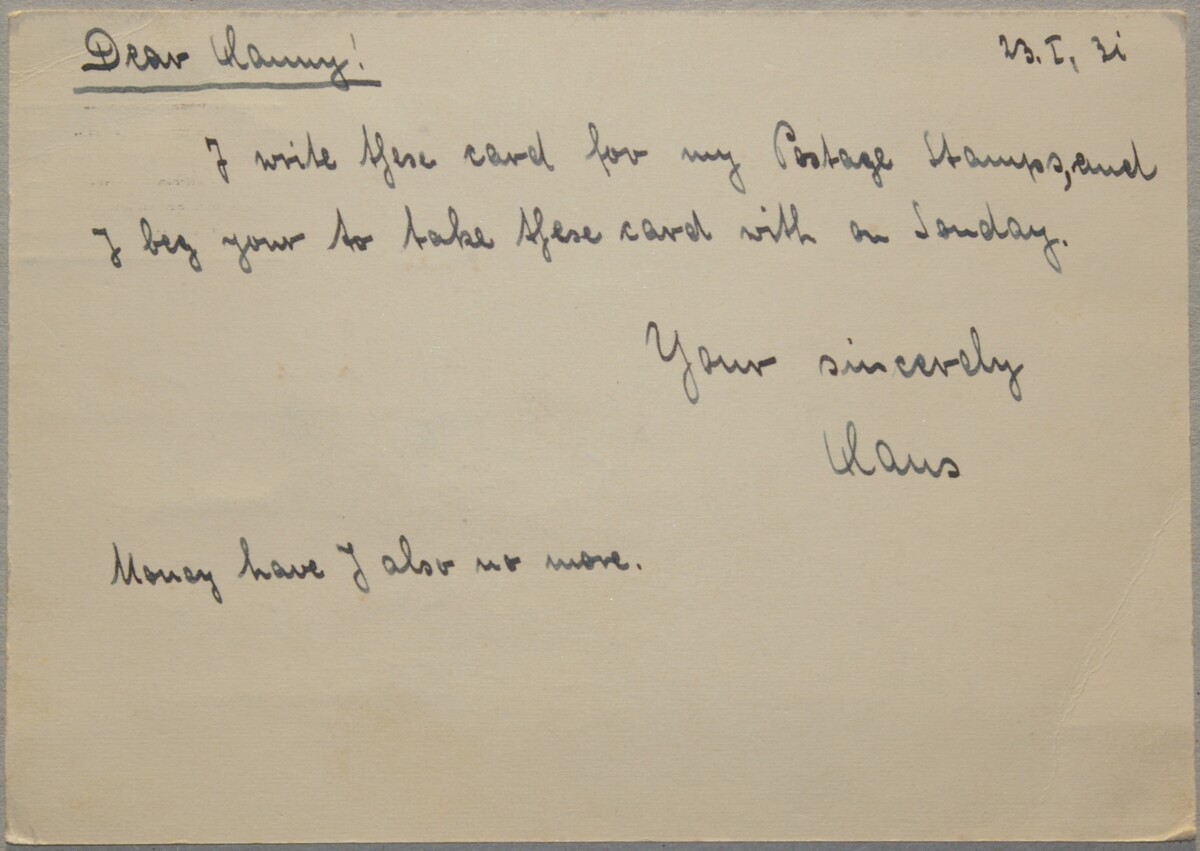 Dear Hanny! 23. I, 31
I write these card for my Postage Stamps, and
I beg your to take these card with on Sonday.
Your sincerely
Hans
Money have I also no more.